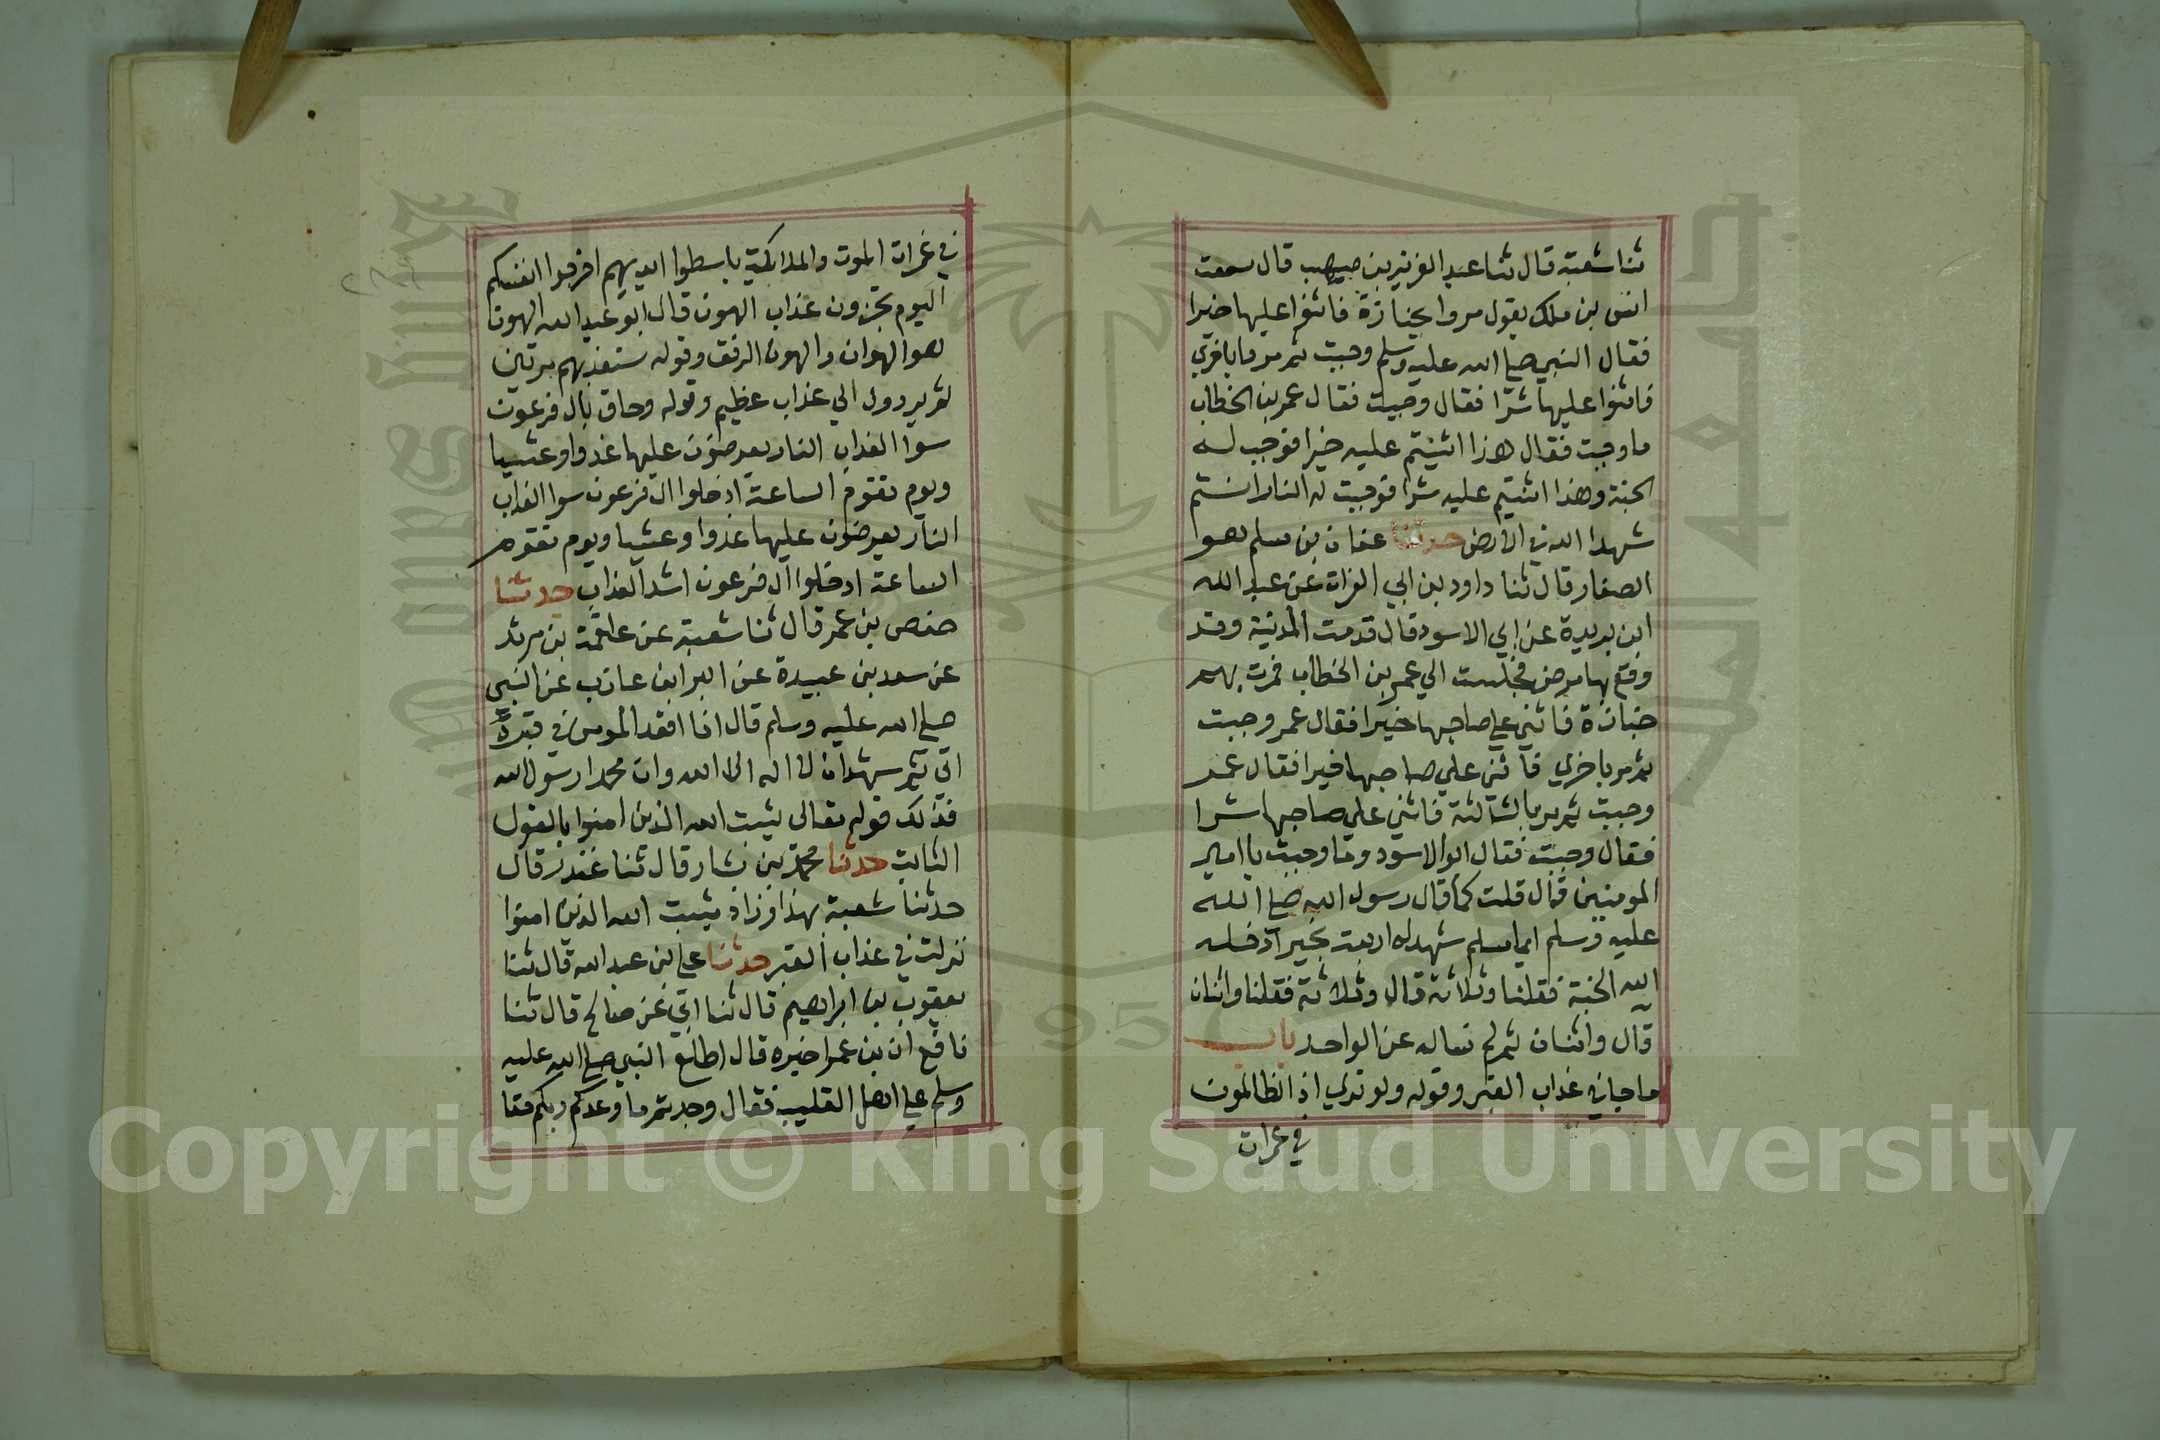 ثنا شعبة قال ثنا عبد العزيز بن صهيب قال سمعت
انس بن ملك يقول مروا بجنازة فاثنوا عليها خيرا
فقال النبي صلي الله عليه وسلم وجبت ثم مروا باخري
فاثنوا عليها شرا فقال وجبت فقال عمر بن الخطاب
ما وجبت فقال هذا اثنيتم عليه خيرا فوجب له
الجنة وهذا اثنيتم عليه شرا فوجبت له النار انتم
شهدا الله في الارض حدثنا عفان بن مسلم هو
الصفار قال ثنا داود بن ابي الفرات عن عبد الله
ابن بريدة عن ابي الاسود قال قدمت المدينة وقد
وقع بها مرض فجلست الي عمر بن الخطاب فمرت بهم
جنازة فاثني علي صاحبها خيرا فقال عمر وجبت
ثم مر باخري فاثني علي صاحبها خيرا فقال عمر
وجبت ثم مر بالثالثة فاثني علي صاحبها شرا
فقال وجبت فقال ابو الاسود وما وجبت يا امير
المومنين قال قلت كما قال رسول الله صلي الله
عليه وسلم ايما مسلم شهد له اربعة بخير ادخله
الله الجنة فقلنا وثلاثة قال وثلاثة فقلنا واثنان
قال واثنان ثم لم نساله عن الواحد باب
ما جا في عذاب القبر وقوله ولو تري اذ الظالمون
في غمرات
في غمرات الموت والملائكة باسطوا ايديهم اخرجوا انفسكم
اليوم تجزون عذاب الهون قال ابو عبد الله الهون
هو الهوان والهون الرفق وقوله سنعذبهم مرتين
ثم يردون الي عذاب عظيم وقوله وحاق بال فرعون
سوا العذاب النار يعرضون عليها غدوا وعشيا
ويوم تقوم الساعة ادخلوا ال فرعون سوا العذاب
النار يعرضون عليها غدوا وعشيا ويوم تقوم
الساعة ادخلوا ال فرعون اشد العذاب حدثنا
حفص بن عمر قال ثنا شعبة عن علقمة بن مرثد
عن سعد بن عبيدة عن البرا بن عازب عن النبي
صلي الله عليه وسلم قال اذا اقعد المومن في قبره
اتي ثم شهد ان لا اله الا الله وان محمدا رسول الله
فذلك قوله تعالي يثبت الله الذين امنوا بالقول
الثابت حدثنا محمد بن بشار قال ثنا غندر قال
حدثنا شعبة بهذا وزاد يثبت الله الذين امنوا
نزلت في عذاب القبر حدثنا علي بن عبد الله قال ثنا
يعقوب بن ابراهيم قال ثنا ابي عن صالح قال ثنا
نافع ان بن عمر اخبره قال اطلع النبي صلي الله عليه
وسلم علي اهل القليب فقال وجدتم ما وعدكم ربكم فقا
King Saud University
جامعة الملك سعود
1957
Copyright © King Saud University